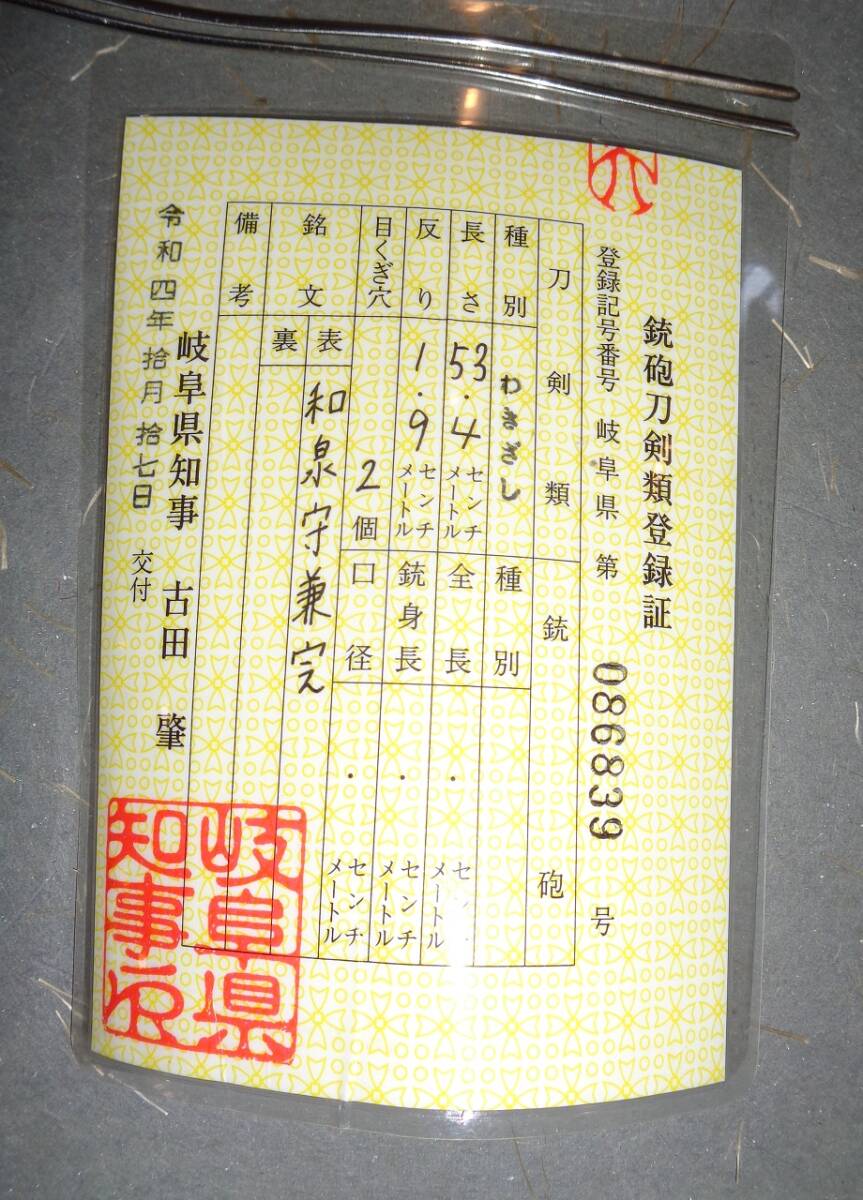 銃砲刀剣類登録証
登録記号番号 岐阜県 第 086839 号
刀剣類
種別 わきざし
長さ 53.4 センチメートル
反り 1.9 センチメートル
目くぎ穴 2個
銘文
表 和泉守兼完
裏
備考
銃砲
種別
全長 ・ センチメートル
銃身長 ・ センチメートル
口径 ・ センチメートル
令和四年拾月拾七日 交付
岐阜県知事 古田 肇
岐阜県
知事印